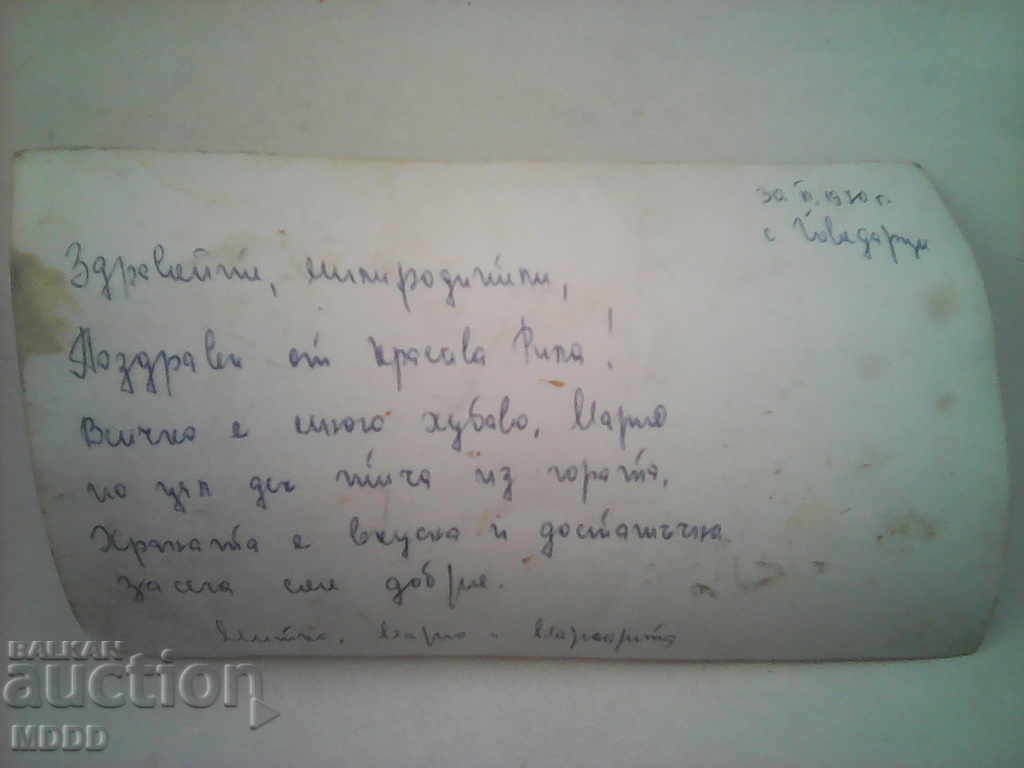 30. VI. 1970 г.
с. Говедарци
Здравейте, мили родители,
Поздрави от красива Рила!
Всичко е много хубаво, Марио
по цял ден тича из гората.
Храната е вкусна и достатъчна
засега сме добре.
Марио и Маргарита
BALKAN
auction
MDDD